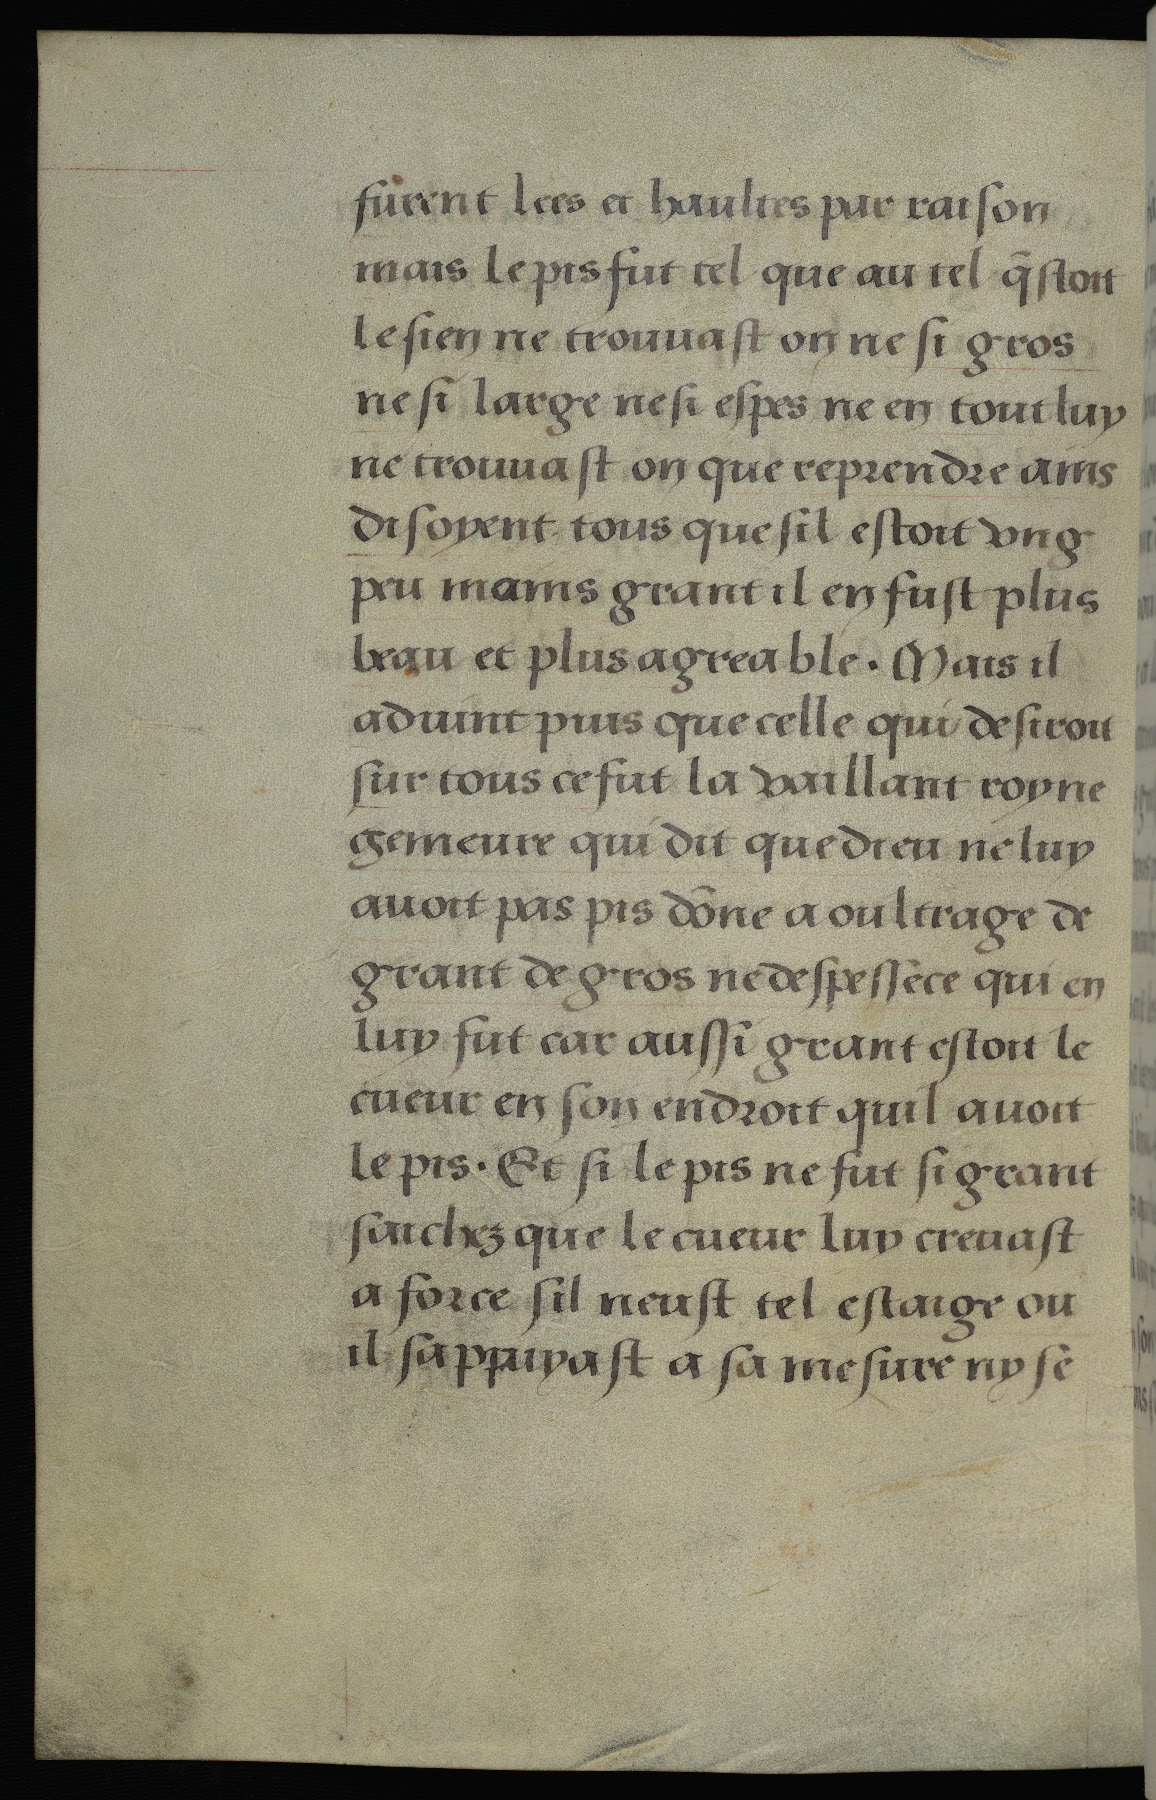 furent lees et haultes par raison
mais le pis fut tel que au tel q̄stoit
le sien ne trouuast on ne si gros
ne si large ne si espes ne en tout luy
ne trouuast on que reprendre ains
disoyent tous que sil estoit vng
peu moins grant il en fust plus
beau et plus agreable. Mais il
aduint puis que celle qui desiroit
sur tous ce fut la vaillant royne
genieure qui dit que dieu ne luy
auoit pas pis dōne a oultrage de
grant de gros ne despessece qui en
luy fut car aussi grant estoit le
cueur en son endroit quil auoit
le pis. Et si le pis ne fut si grant
saichez que le cueur luy creuast
a force sil neust tel estaige ou
il sappuyast a sa mesure ny se